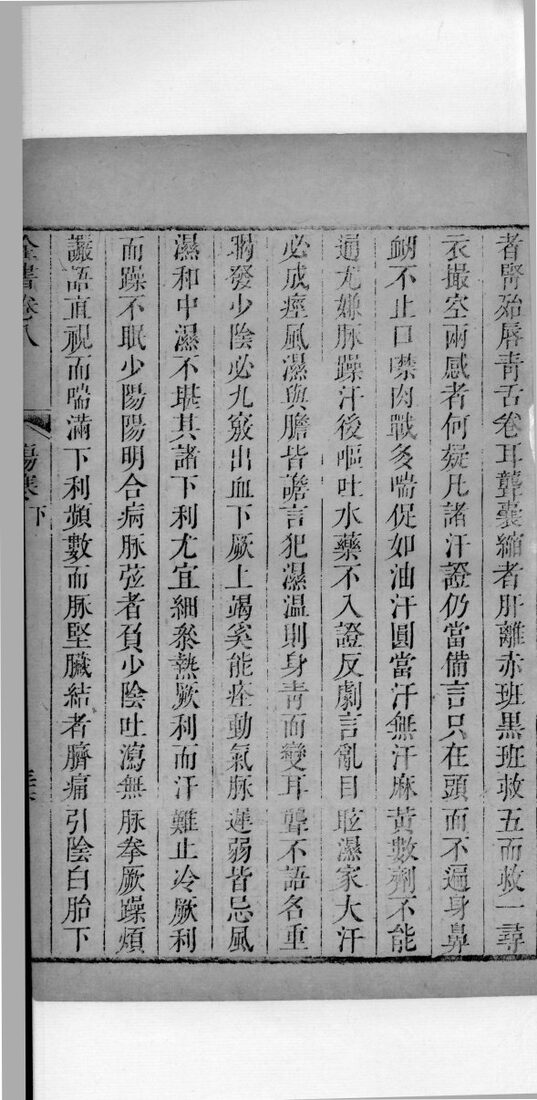 者腎殆唇青舌卷耳聾囊縮者肝離赤班黑班救五而救一尋
衣撮空兩感者何疑凡諸汗證仍當備言只在頭面不遍身鼻
衂不止口噤肉戰多喘促如油汗圓當汗無汗麻黃數劑不能
通尤嫌脉躁汗後嘔吐水藥不入證反劇言亂目眩濕家大汗
必成痙風濕與膽皆譫言犯濕溫則身青面變耳聾不語名重
暍發少陰必九竅出血下厥上竭奚能痊動氣脉遲弱皆忌風
濕和中濕不堪其諸下利尤宜細叅熱厥利而汗難止冷厥利
而躁不眠少陽陽明合病脉弦者負少陰吐瀉無脉拳厥躁煩
譫語直視而喘滿下利頻數而脉堅臟結者臍痛引陰白胎下
全書卷八 傷寒下